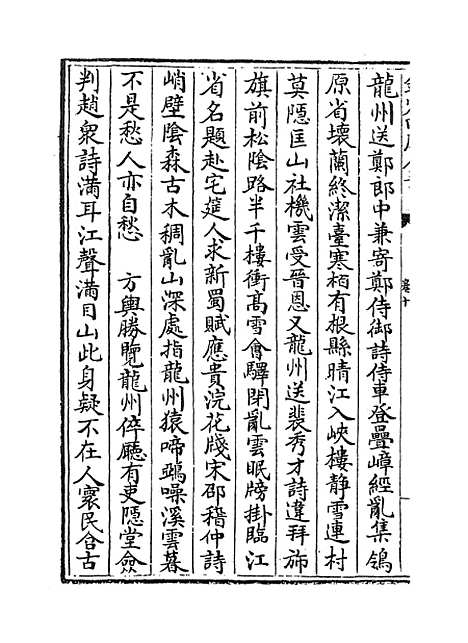 龍州送鄭郎中兼寄鄭侍御詩侍車登疊嶂經亂集鴒
原省壞蘭終潔臺寒栢有根縣晴江入峽樓静雪連村
莫隱匡山社機雲受晉恩又龍州送裴秀才詩違拜斾
旗前松陰路半千樓衝髙雪會驛閉亂雲眠牓掛臨江
省名題赴宅筵人求新蜀賦應貴浣花牋宋邵稽仲詩
峭壁陰森古木稠亂山深處指龍州猿啼鴞噪溪雲暮
不是愁人亦自愁　方輿勝覽龍州倅廳有吏隱堂僉
判趙衆詩滿耳江聲滿目山此身疑不在人寰民含古